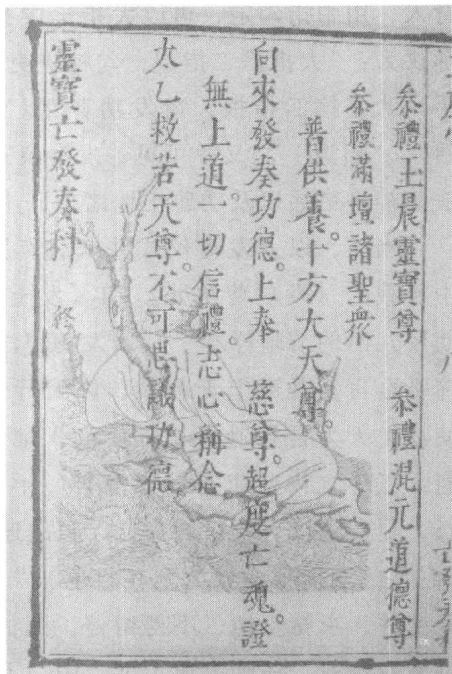 叅禮玉晨靈寶尊　叅禮混元道德尊
叅禮滿壇諸聖衆
普供養。十方大天尊。
向來發奏功德。上奉　慈尊。超度亡魂。證
無上道。一切信禮。志心稱念
太乙救苦天尊。不可思議功德。
靈寶亡發奏科　終